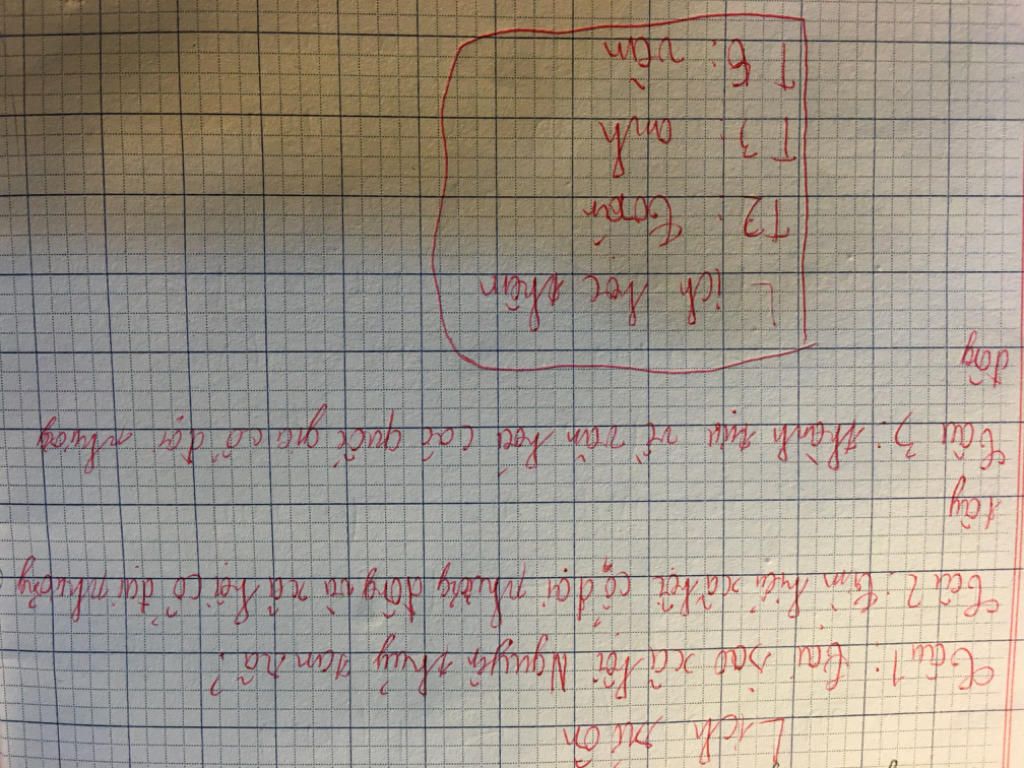 Lịch sử ôn
Câu 1: Tại sao xã hội Nguyên thuỷ tan rã?
Câu 2: Tìm hiểu xã hội cổ đại phương đông và xã hội cổ đại phương
tây
Câu 3: thành tựu về văn hoá các quốc gia cổ đại phương
đông
Lịch học thêm
T2: Toán
T3: anh
T6: văn